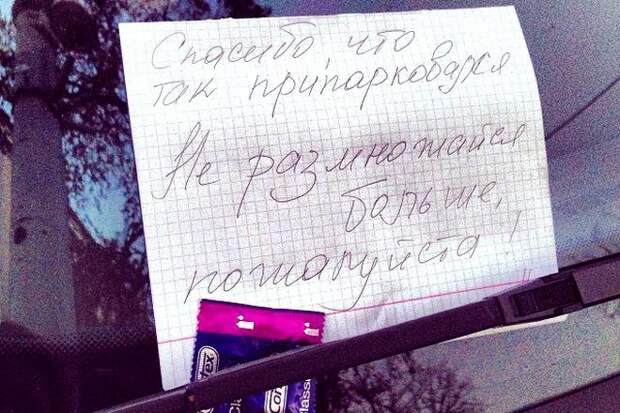 Спасибо, что
так припарковался
Не размножайся
больше,
пожалуйста!